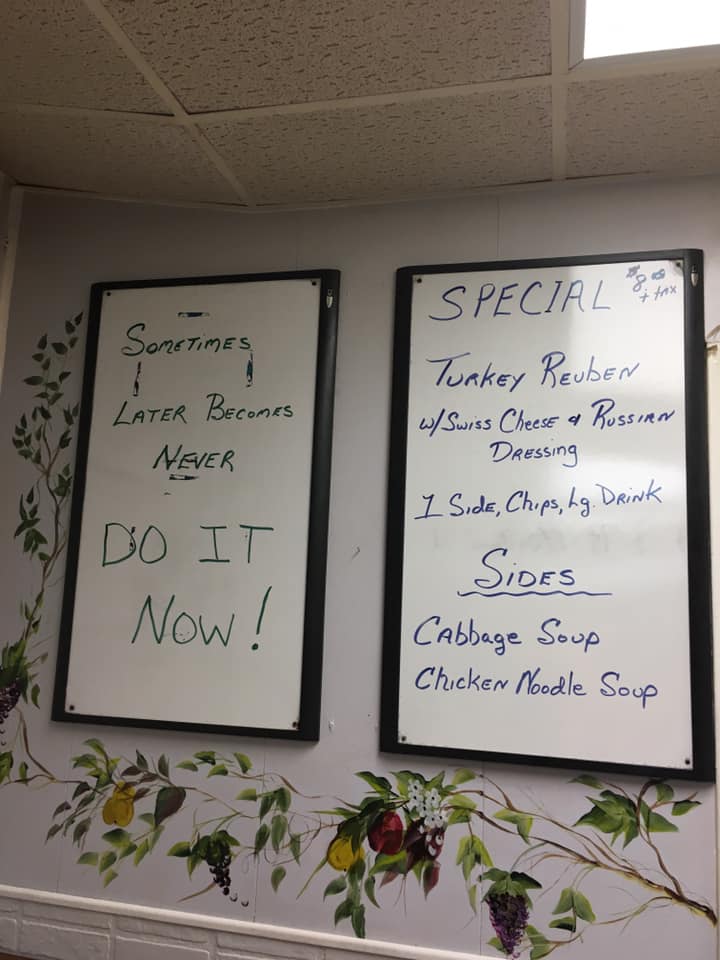 SOMETIMES
LATER BECOMES
NEVER
DO IT
NOW!
SPECIAL $8.00
+ tax
TURKEY REUBEN
w/SWISS CHEESE & RUSSIAN
DRESSING
1 SIDE, CHIPS, Lg. DRINK
SIDES
CABBAGE SOUP
CHICKEN NOODLE SOUP